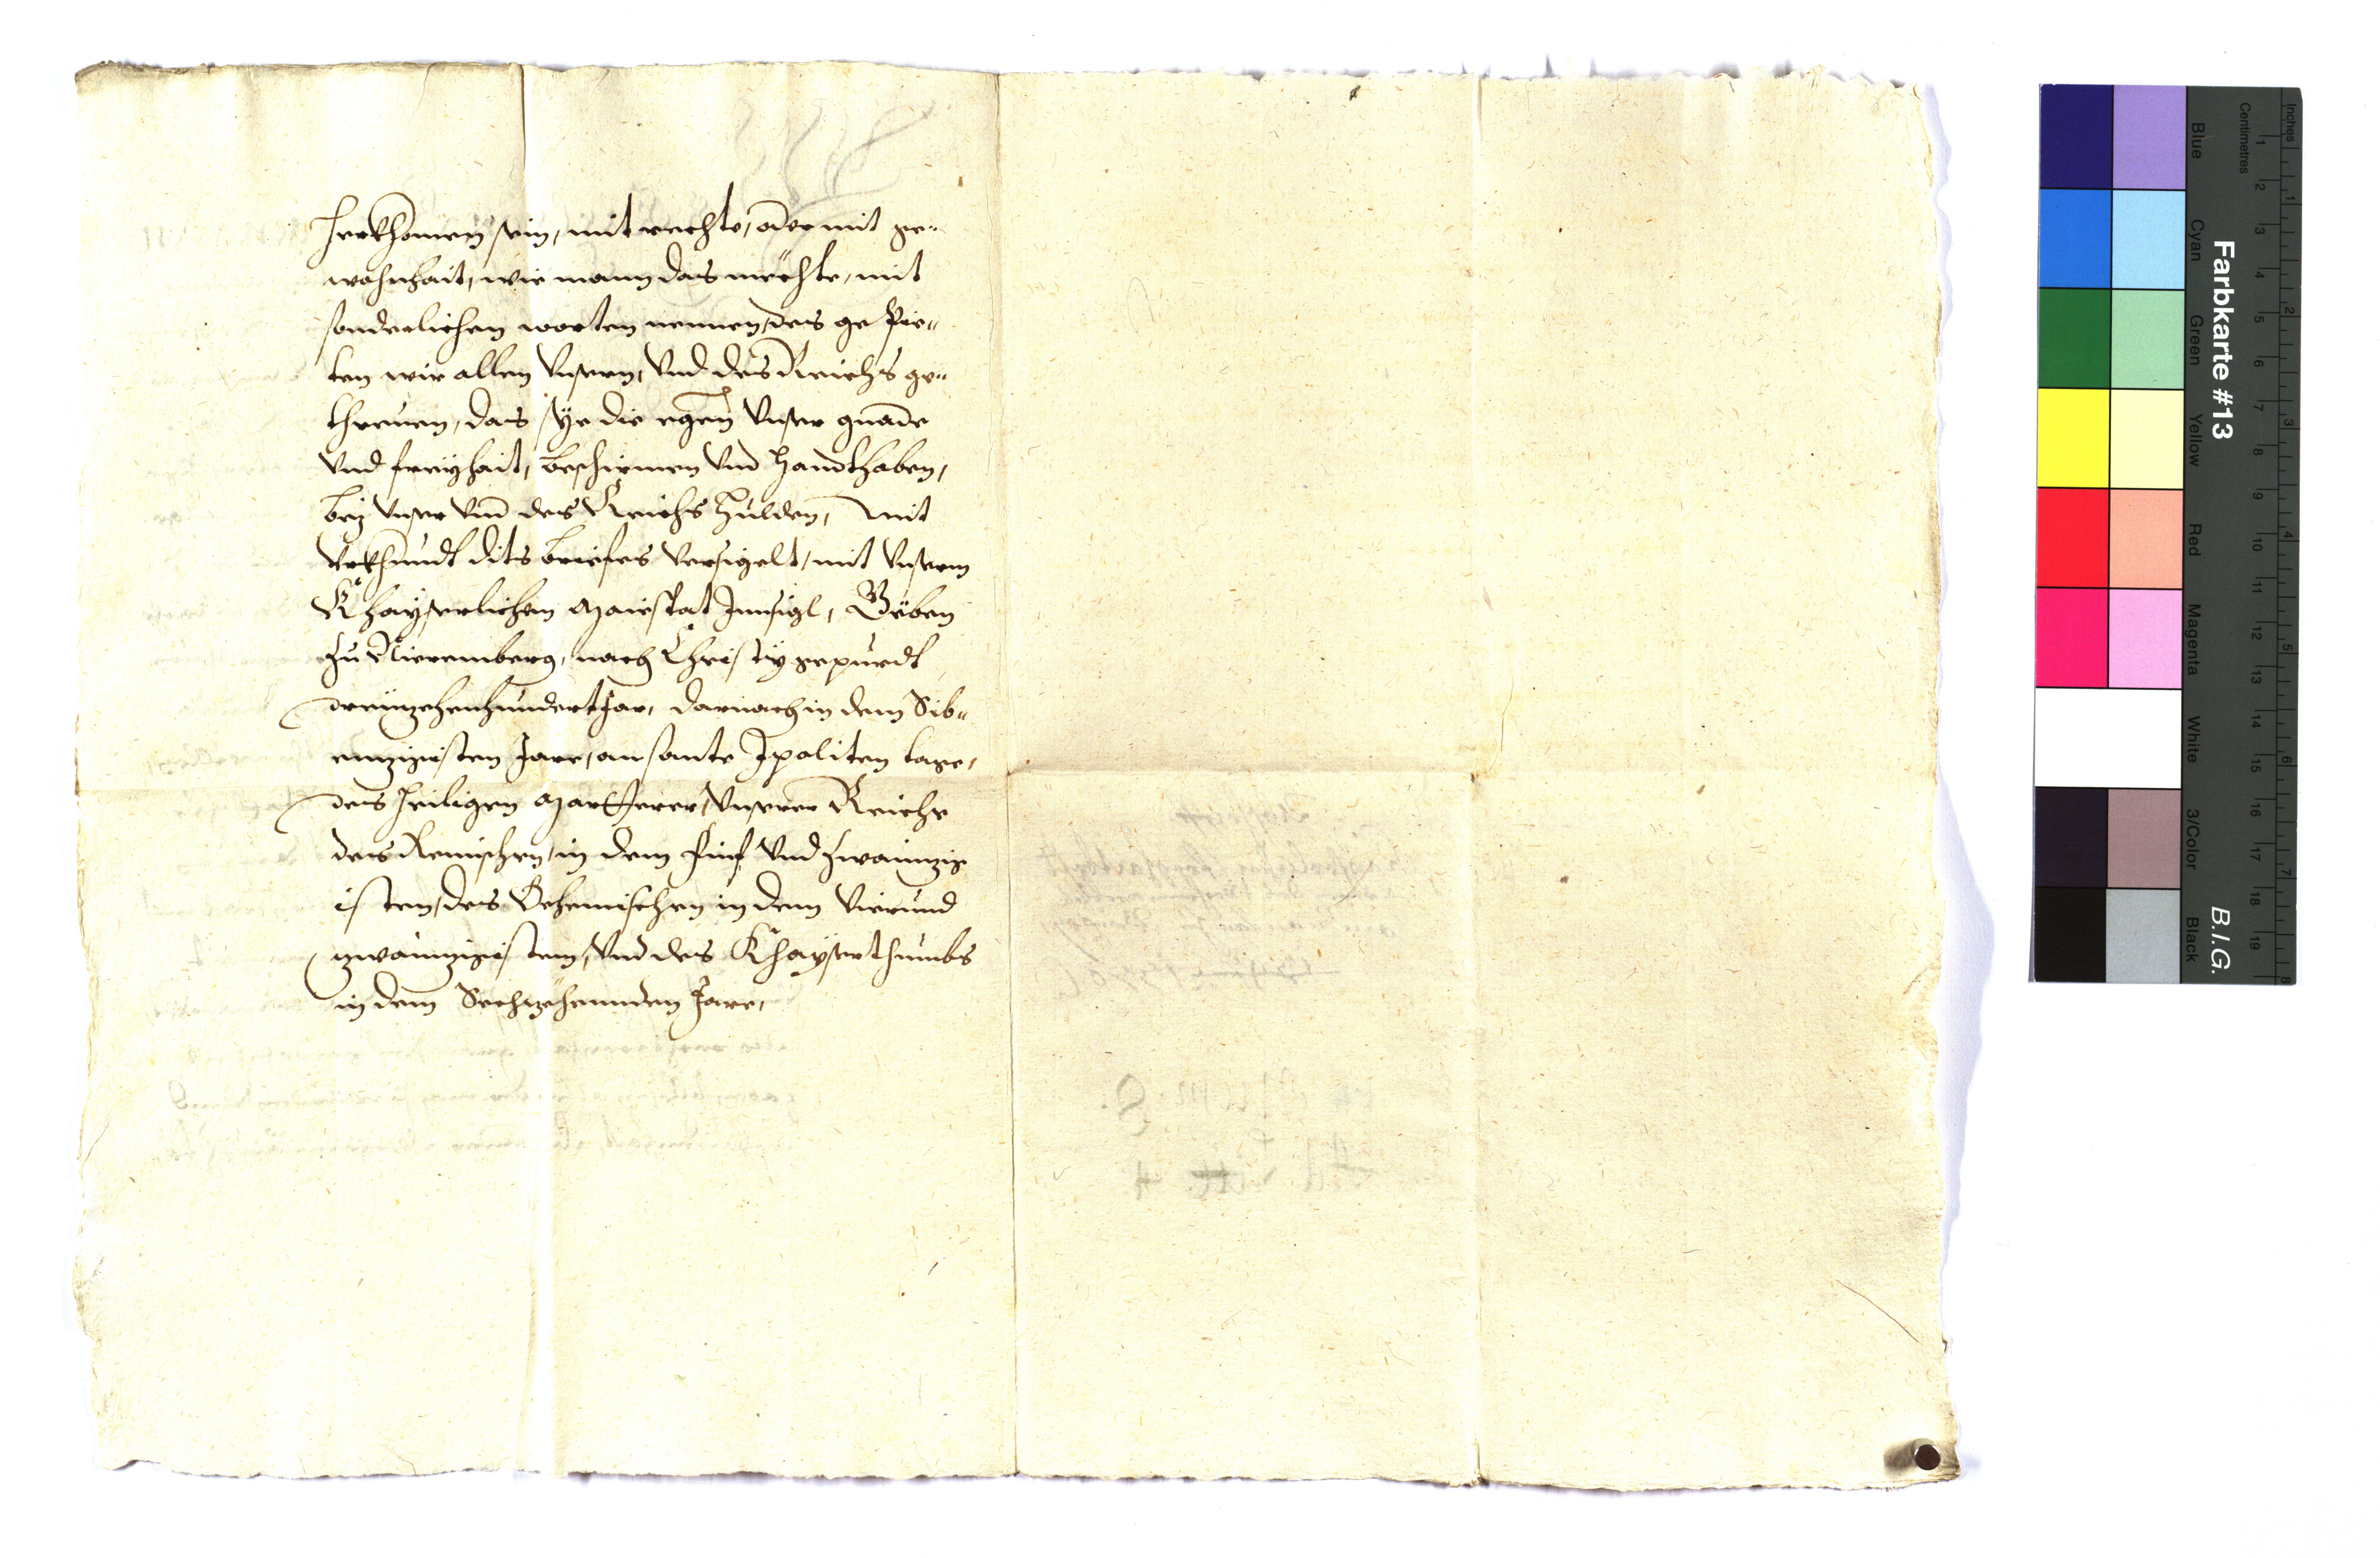 herkhomen sein, mit rechte, oder mit ge-
wohnhait, wie mann das möchte, mit
sonderlichen worten nennen, des ge pie-
ten wir allen Unsern, Und des Reichs ge-
threuen, das sÿe die egen Unser gnade
Und freÿhait, beschirmen Und Handthaben,
beÿ Unser Und des Reichs Hulden, mit
Urkhundt dits briefes Versigelt, mit Unserm
Khaÿserlichem Maiestat Innsigl, Geben
zu Nieremberg, nach Christÿ gepurdt
dreüzehenhundert Jar, darnach in dem Sib-
enzigisten Jare, an sante Ipoliten tage,
des heiligen Marthrer, Unserer Reiche
des Remischen, in dem Fünf Und zwainzig
isten, des Behemischen in dem Vierund
zwainzigisten, Und des Khaÿserthumbs
in dem Sechzehennden Jare,
Farbkarte #13
B.I.G.
Inches
Centimetres
Blue
Cyan
Green
Yellow
Red
Magenta
White
3/Color
Black
1 2 3 4 5 6 7 8 9 10 11 12 13 14 15 16 17 18 19
1 2 3 4 5 6 7 8